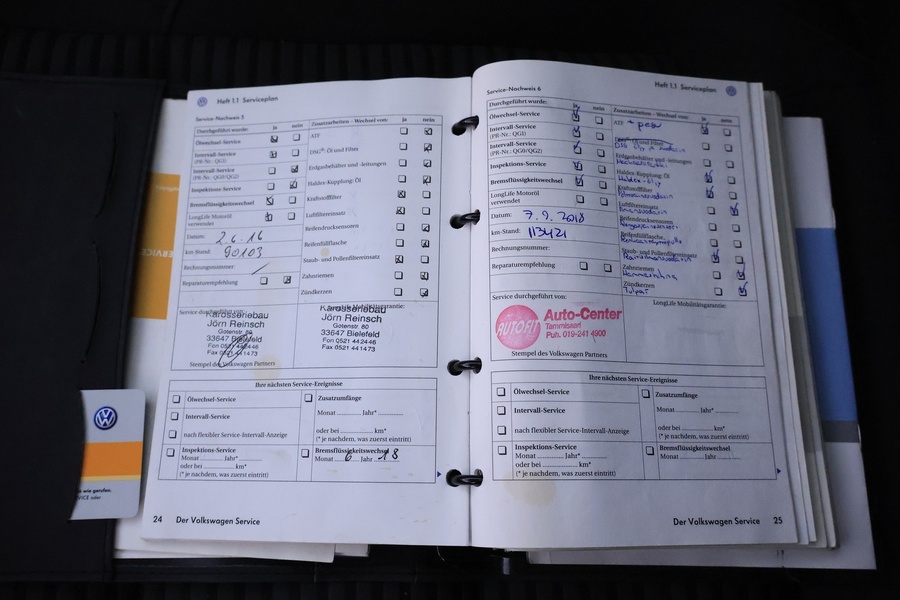 Heft 1.1 Serviceplan
Service-Nachweis 5
Durchgeführt wurde: ja nein
Ölwechsel-Service
Intervall-Service
(PR-Nr.: QG1)
Intervall-Service
(PR-Nr.: QG0/QG2)
Inspektions-Service
Bremsflüssigkeitswechsel
LongLife Motoröl
verwendet
Datum: 2.6.16
km-Stand: 90103
Rechnungsnummer
Reparaturempfehlung
Zusatzarbeiten – Wechsel von: ja nein
ATF
DSG®: Öl und Filter
Erdgasbehälter und -leitungen
Haldex-Kupplung: Öl
Kraftstofffilter
Luftfiltereinsatz
Reifendrucksensoren
Reifenfüllflasche
Staub- und Pollenfiltereinsatz
Zahnriemen
Zündkerzen
Service durchgeführt von:
Karosseriebau
Jörn Reinsch
Gotenstr. 80
33647 Bielefeld
Fon 0521 442446
Fax 0521 441473
Stempel des Volkswagen Partners
LongLife Mobilitätsgarantie:
Karosseriebau
Jörn Reinsch
Gotenstr. 80
33647 Bielefeld
Fon 0521 442446
Fax 0521 441473
Ihre nächsten Service-Ereignisse
Ölwechsel-Service
Intervall-Service
nach flexibler Service-Intervall-Anzeige
Zusatzumfänge
Monat Jahr*
oder bei km*
(* je nachdem, was zuerst eintritt)
Inspektions-Service
Monat Jahr*
oder bei km*
(* je nachdem, was zuerst eintritt)
Bremsflüssigkeitswechsel
Monat 6 Jahr 18
24 Der Volkswagen Service
Heft 1.1 Serviceplan
Service-Nachweis 6
Durchgeführt wurde: ja nein
Ölwechsel-Service
Intervall-Service
(PR-Nr.: QG1)
Intervall-Service
(PR-Nr.: QG0/QG2)
Inspektions-Service
Bremsflüssigkeitswechsel
LongLife Motoröl
verwendet
Datum: 7.9.2018
km-Stand: 113421
Rechnungsnummer:
Reparaturempfehlung
Zusatzarbeiten – Wechsel von: ja nein
ATF
DSG®: Öl und Filter
Erdgasbehälter und -leitungen
Haldex-Kupplung: Öl
Haldex-öljy
Kraftstofffilter
Luftfiltereinsatz
Reifendrucksensoren
Reifenfüllflasche
Staub- und Pollenfiltereinsatz
Zahnriemen
Hammashihna
Zündkerzen
Tulpat
Service durchgeführt von:
AUTOFIT
Auto-Center
Tammisaari
Puh. 019-241 4900
Stempel des Volkswagen Partners
LongLife Mobilitätsgarantie:
Ihre nächsten Service-Ereignisse
Ölwechsel-Service
Intervall-Service
nach flexibler Service-Intervall-Anzeige
Zusatzumfänge
Monat Jahr*
oder bei km*
(* je nachdem, was zuerst eintritt)
Inspektions-Service
Monat Jahr*
oder bei km*
(* je nachdem, was zuerst eintritt)
Bremsflüssigkeitswechsel
Monat Jahr
Der Volkswagen Service 25